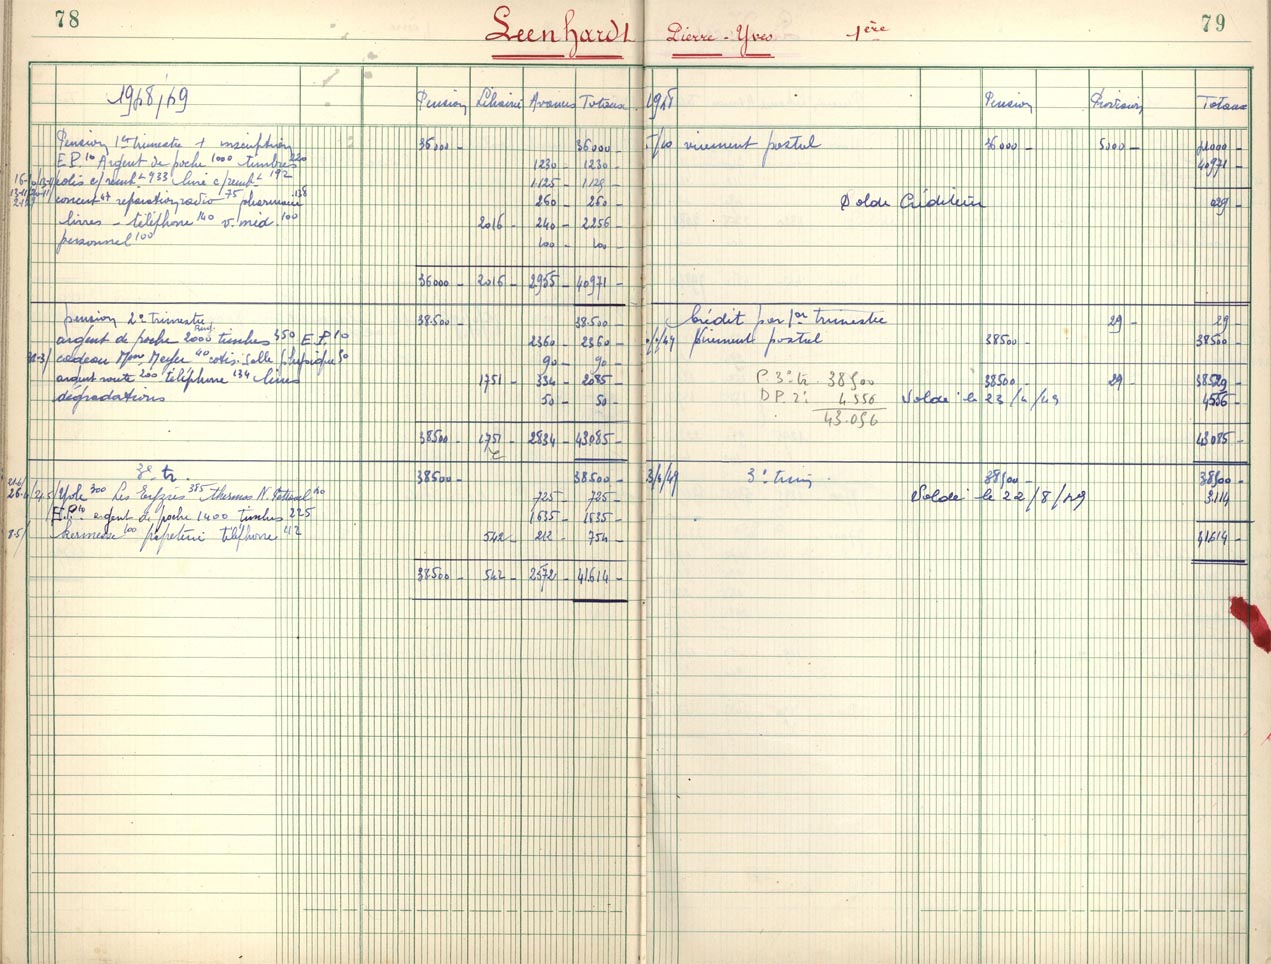 78
Leenhardt Pierre-Yves 1ère
79
1948/49 Pension Librairie Avances Totaux
Pension 1er trimestre + inscription 36000 - 36000 -
E.P. 10 Argent de poche 1000 timbres 220 1230 - 1230 -
colis c/rembt 933 livre c/rembt 192 1125 - 1125 -
concert 47 reparation radio 75 pharmacie 138 260 - 260 -
livres - téléphone 140 v. méd. 100 2016 - 240 - 2256 -
personnel 100 100 - 100 -
36000 - 2016 - 2955 - 40971 -
pension 2e trimestre 38.500 - 38.500 -
argent de poche 2000 timbres 350 E.P. 10 2360 - 2360 -
cadeau Mme 40 cotis. salle 50 90 - 90 -
argent route 200 téléphone 134 livres 1751 - 334 - 2085 -
dégradations 50 - 50 -
38500 - 1751 - 2834 - 43085 -
3e tr. 38500 - 38500 -
300 Les 385 thermos N. 40 725 - 725 -
E.P. 10 argent de poche 1400 timbres 225 1635 - 1635 -
8-5/ kermesse 100 papeterie téléphone 112 542 - 212 - 754 -
38500 - 542 - 2572 - 41614 -
1948 Pension Provision Totaux
virement postal 36000 - 5000 - 41000 -
40971 -
Solde Créditeur 029 -
Crédit par 1er trimestre 29 - 29 -
virement postal 38500 - 38500 -
P. 3e tr. 38500 38500 - 29 - 38529 -
D.P. 2e 4556 Soldé le 23/4/49 4556 -
43.056
43085 -
3e trim. 38500 - 38500 -
Soldé le 22/8/49 3.114
41614 -